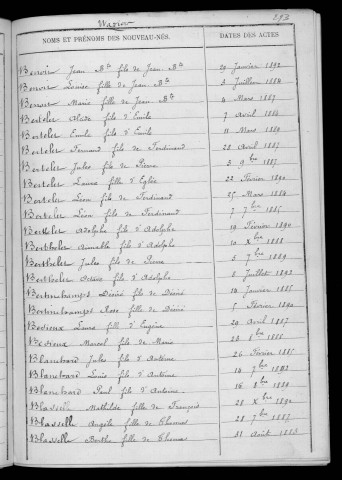 Wazier
293
NOMS ET PRÉNOMS DES NOUVEAU-NÉS.
DATES DES ACTES
Benoir Jean Bte fils de Jean Bte 29 Janvier 1892
Benoir Louise fille de Jean Bte 3 Juillet 1884
Benoir Marie fille de Jean Bte 4 Mars 1887
Berteler Alcide fils d'Emile 7 Avril 1884
Berteler Emile fils d'Emile 11 Mars 1889
Berteler Fernand fils de Ferdinand 28 Avril 1887
Berteler Jules fils de Pierre 3 9bre 1887
Berteler Laure fille d'Eglée 22 Février 1890
Berteler Léon fils de Ferdinand 25 Mars 1884
Berteler Léon fils de Ferdinand 7 7bre 1885
Bertheler Adolphe fils d'Adolphe 19 Février 1890
Bertheler Aimable fils d'Adolphe 10 Xbre 1888
Bertheler Jules fils de Pierre 5 7bre 1889
Bertheler Octave fils d'Adolphe 8 Juillet 1892
Désiré fils de Désiré 14 Janvier 1885
Rose fille de Désiré 5 Février 1890
Bevieux Laure fille d'Eugène 29 Avril 1887
Bevieux Marcel fils de Marie 28 8bre 1886
Blanchard Jules fils d'Antoine 26 Février 1885
Blanchard Louis fils d'Antoine 14 7bre 1882
Blanchard Paul fils d'Antoine 16 8bre 1889
Mathilde fille de François 28 Xbre 1890
Blasselle Angèle fille de Thomas 28 7bre 1887
Blasselle Berthe fille de Thomas 31 Août 1883